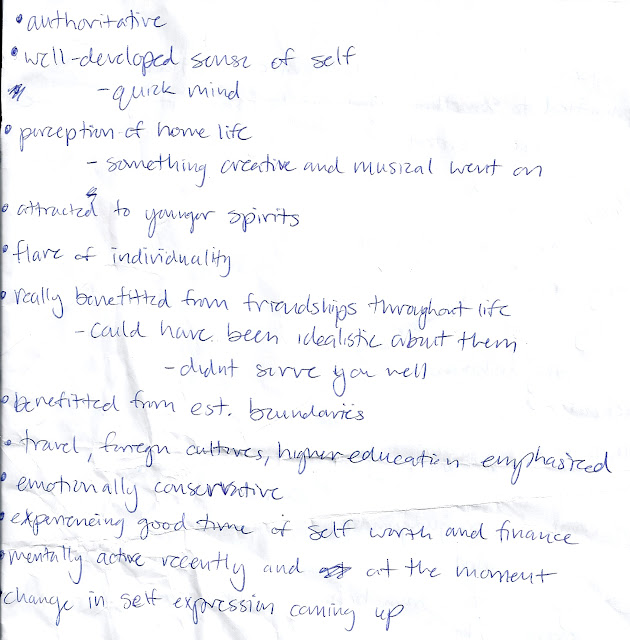 • authoritative
• well-developed sense of self
- quick mind
• perception of home life
- something creative and musical went on
• attracted to younger spirits
• flare of individuality
• really benefitted from friendships throughout life
- could have been idealistic about them
- didnt serve you well
• benefitted from est. boundaries
• travel, foreign cultures, higher education emphasized
• emotionally conservative
• experiencing good time of self worth and finance
• mentally active recently and at the moment
• change in self expression coming up